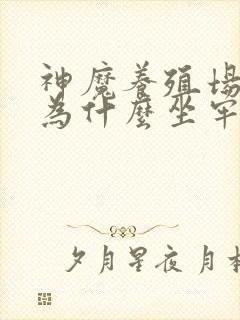 神魔養殖場
為什麼坐牢
夕月星夜月